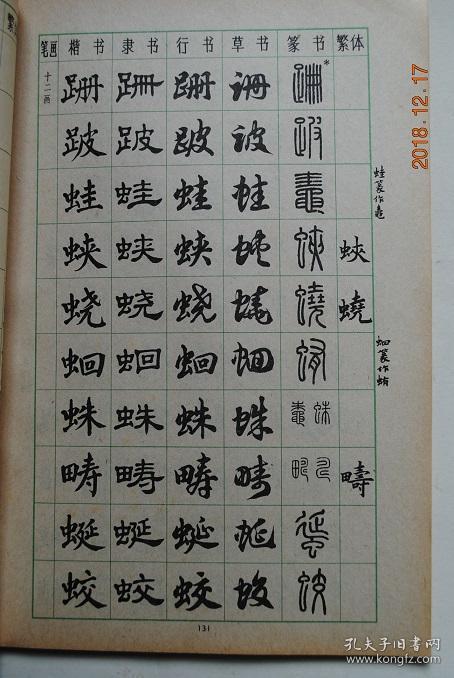 笔画 楷书 隶书 行书 草书 篆书 繁体
十二画 跚 跚 跚 跚 跚*
跛 跛 跛 跛 跛
蛙 蛙 蛙 蛙 鼃
蛱 蛱 蛱 蛱 蛺 蛺
蛲 蛲 蛲 蛲 蟯 蟯
蛔 蛔 蛔 蛔 蛕
蛛 蛛 蛛 蛛 鼄 蛛
畴 畴 畴 畴 疇
蜒 蜒 蜒 蜒 蜒
蛟 蛟 蛟 蛟 蛟
蛙篆作鼃
蛔篆作蛕
131
2018.12.17
孔夫子旧书网
www.kongfz.com